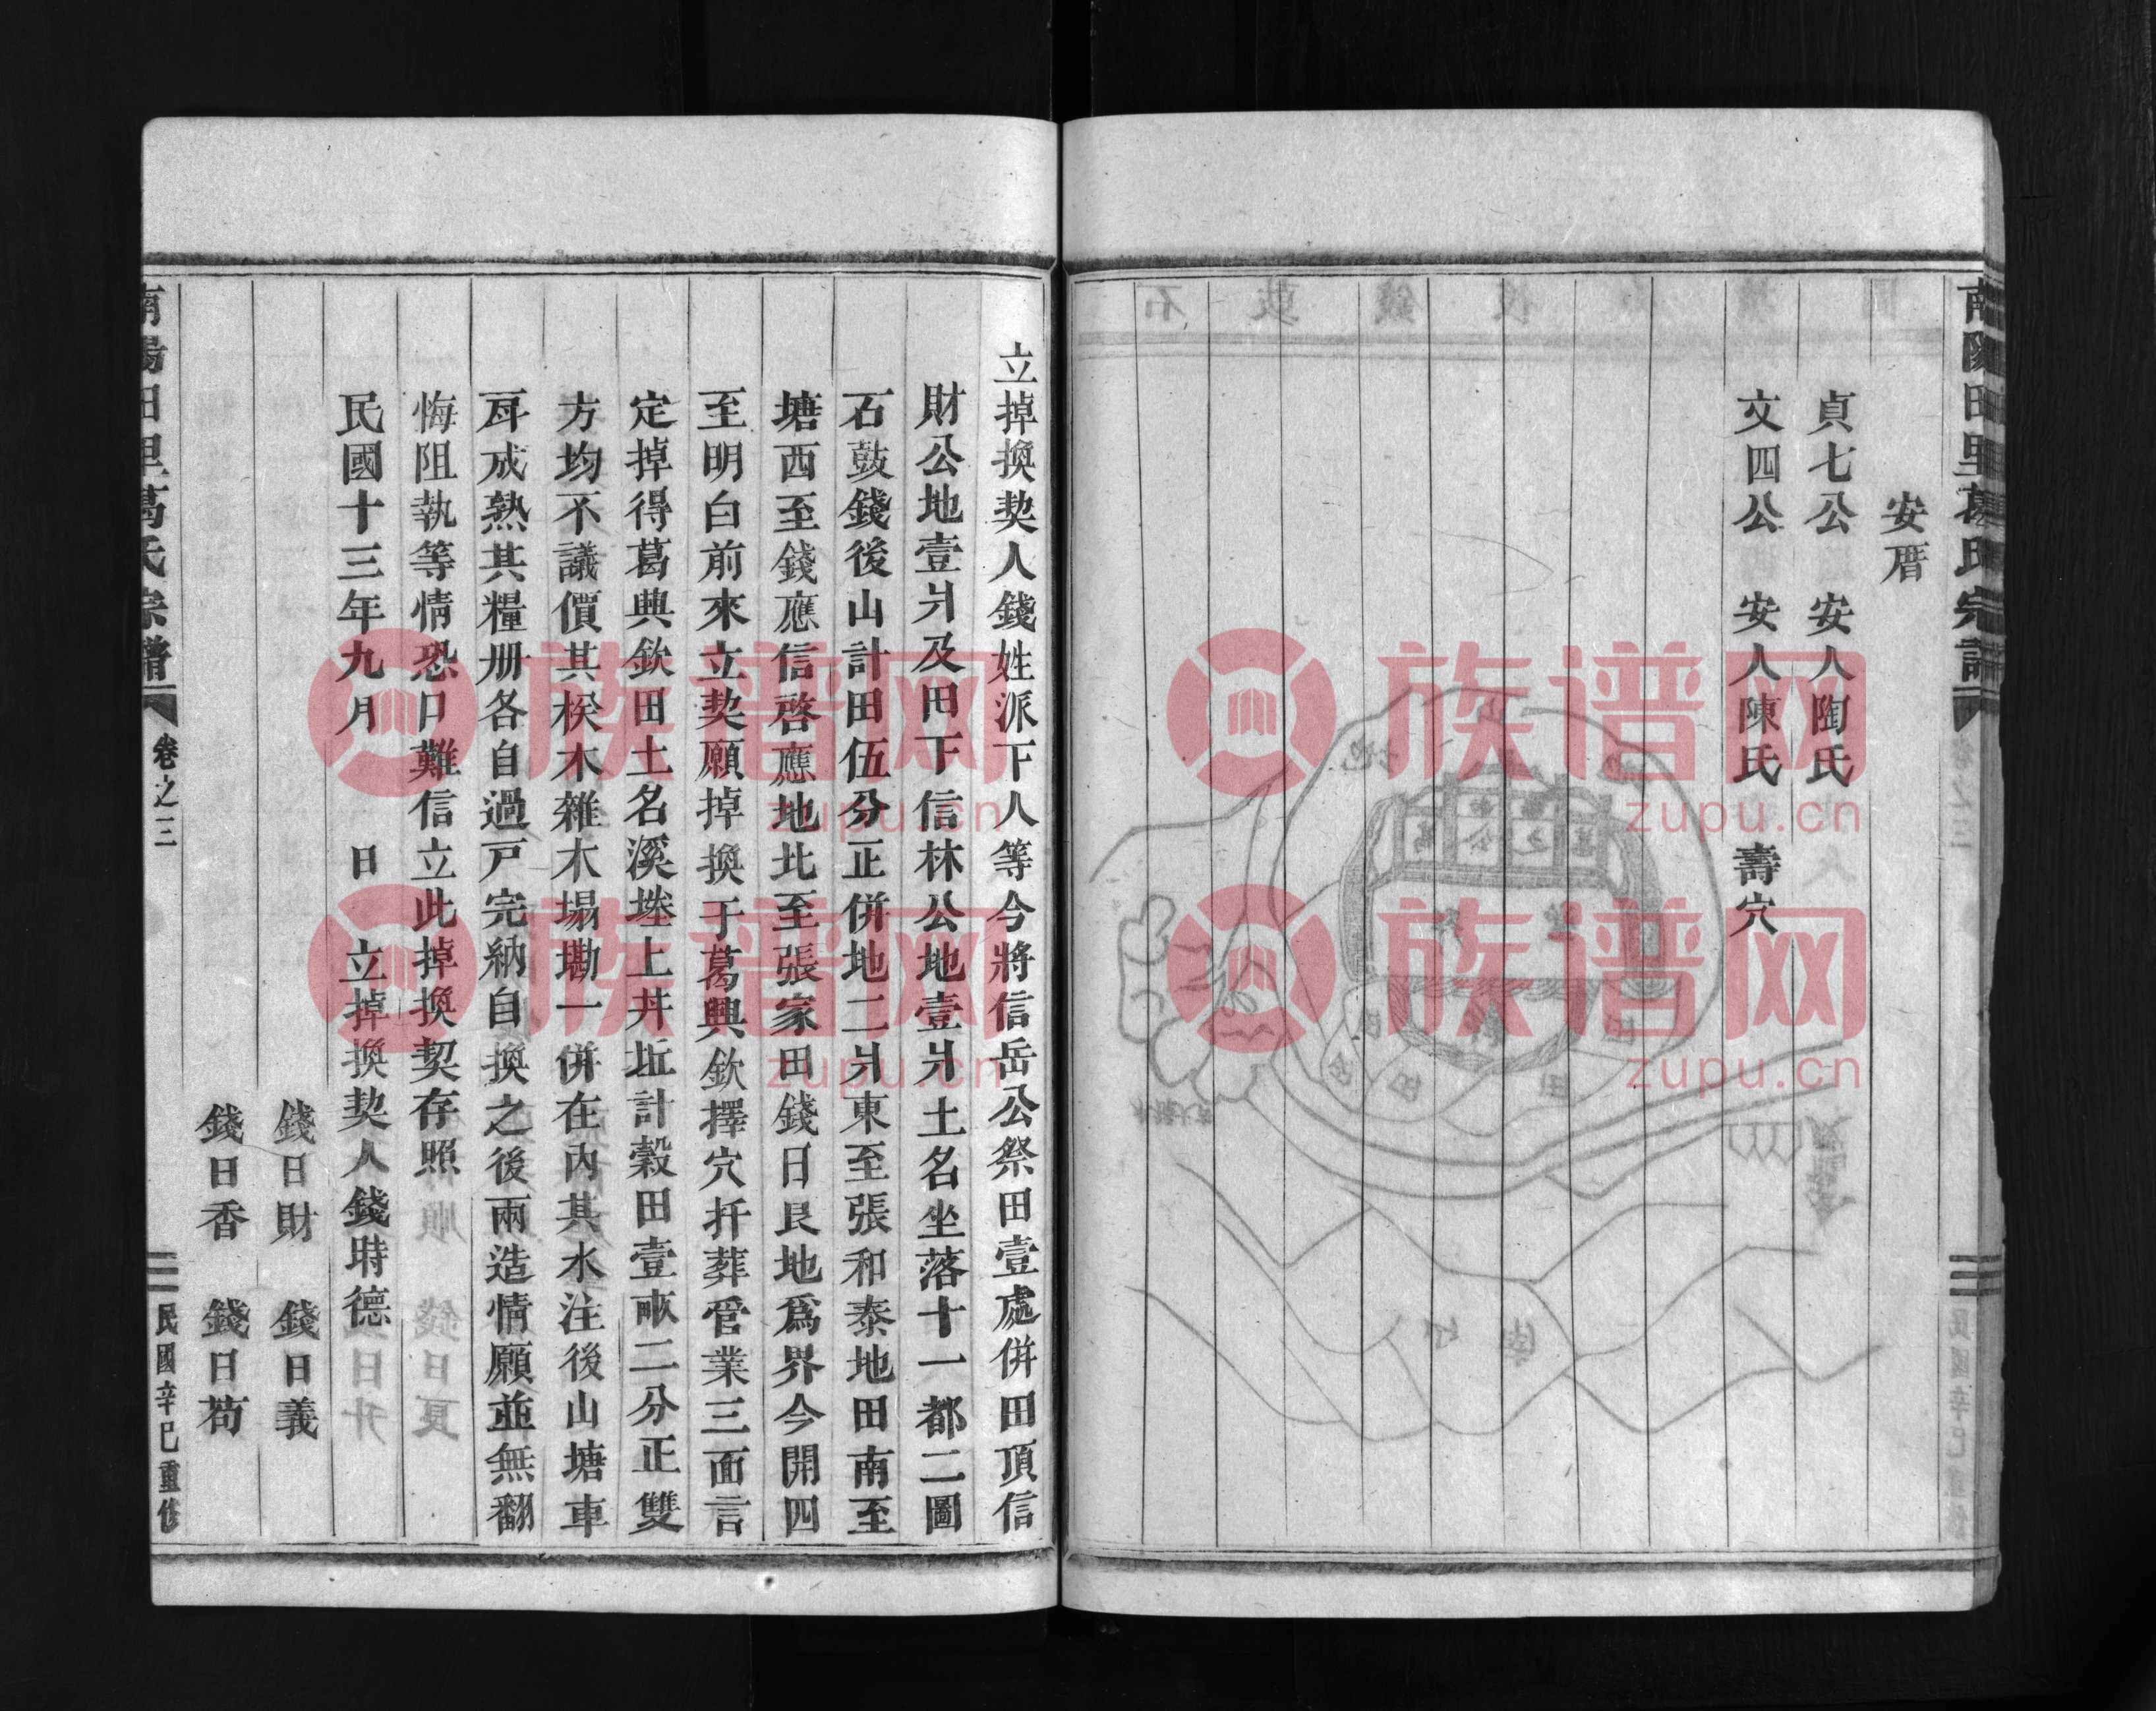 南陽田里葛氏宗譜
安厝
貞七公　安人陶氏
文四公　安人陳氏　壽穴
立掉換契人錢姓派下人等今將信岳公祭田壹處併田頂信
財公地壹爿及田下信林公地壹爿土名坐落十一都二圖
石鼓錢後山計田伍分正併地二爿東至張和泰地田南至
塘西至錢應信啓應地北至張家田錢日艮地爲界今開四
至明白前來立契願掉換于葛興欽擇穴扦葬管業三面言
定掉得葛興欽田土名溪塍上井坵計穀田壹畝二分正雙
方均不議價其桜木雜木塌勘一併在內其水注後山塘車
戽成熟其糧册各自過戸完納自換之後兩造情願並無翻
悔阻執等情恐口難信立此掉換契存照
民國十三年九月　日　立掉換契人錢時德
錢日財　錢日義
錢日香　錢日苟
南陽田里葛氏宗譜　卷之三　民國辛巳重修
族谱网
zupu.cn
族谱网
zupu.cn
族谱网
zupu.cn
族谱网
zupu.cn